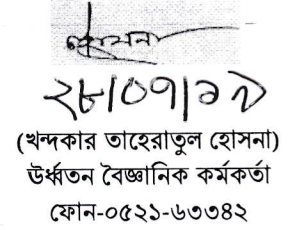 হোসনা
২৮/০৭/১৯
(খন্দকার তাহেরাতুল হোসনা)
উর্ধ্বতন বৈজ্ঞানিক কর্মকর্তা
ফোন-০৫২১-৬৩৩৪২